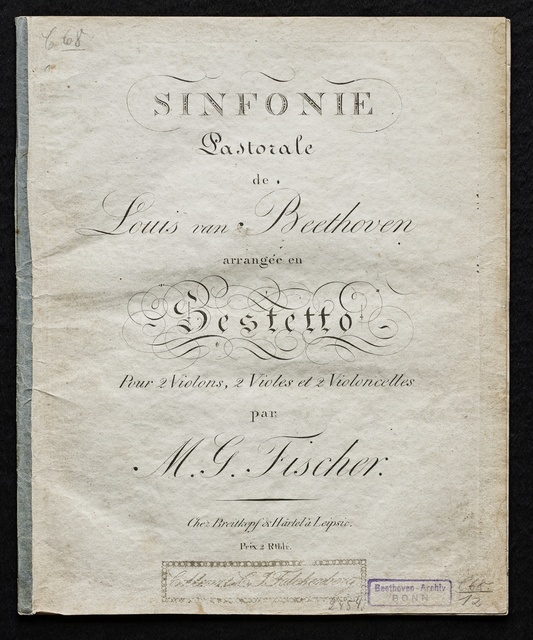 668
SINFONIE
Pastorale
de
Louis van Beethoven
arrangée en
Sestetto
Pour 2 Violons, 2 Violes et 2 Violoncelles
par
M. G. Fischer.
Chez Breitkopf & Härtel à Leipsic.
Prix 2 Rthlr.
Beethoven-Archiv
BONN